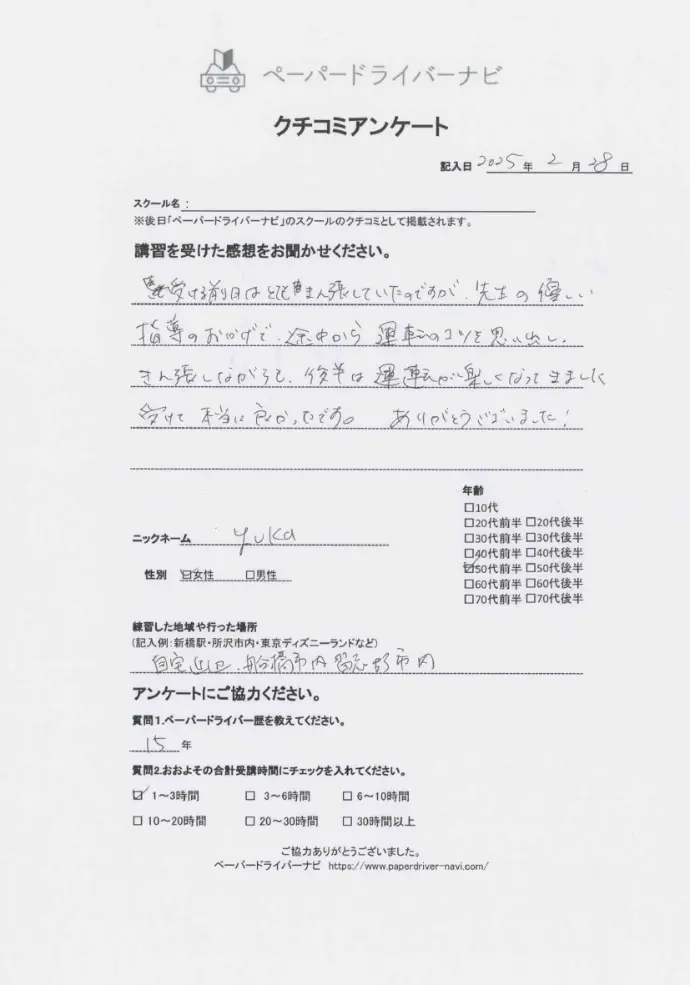 ペーパードライバーナビ
クチコミアンケート
記入日 2025 年 2 月 28 日
スクール名:
※後日「ペーパードライバーナビ」のスクールのクチコミとして掲載されます。
講習を受けた感想をお聞かせください。
受ける前日はとてもきん張していたのですが、先生の優しい
指導のおかげで、途中から 運転のコツを思い出し、
きん張しながらも、後半は運転が楽しくなってきました
受けて 本当に良かったです。 ありがとうございました!
年齢
□10代
□20代前半 □20代後半
□30代前半 □30代後半
□40代前半 □40代後半
☑50代前半 □50代後半
□60代前半 □60代後半
□70代前半 □70代後半
ニックネーム yuka
性別 ☑女性 □男性
練習した地域や行った場所
(記入例:新橋駅・所沢市内・東京ディズニーランドなど)
自宅近辺、船橋市内 習志野市内
アンケートにご協力ください。
質問1.ペーパードライバー歴を教えてください。
15 年
質問2.おおよその合計受講時間にチェックを入れてください。
☑ 1～3時間 □ 3～6時間 □ 6～10時間
□ 10～20時間 □ 20～30時間 □ 30時間以上
ご協力ありがとうございました。
ペーパードライバーナビ https://www.paperdriver-navi.com/